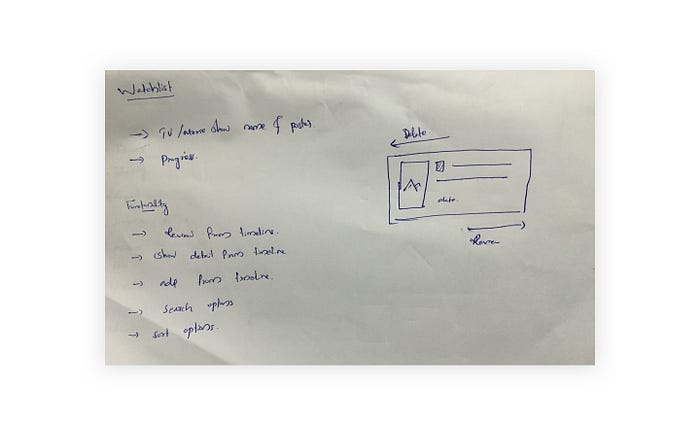 Watchlist
→ TV /anime show name & poster
→ Progress.
Functionality
→ Review from timeline.
→ show detail from timeline
→ add from timeline.
→ search options
→ sort options.
Delete
date.
Review